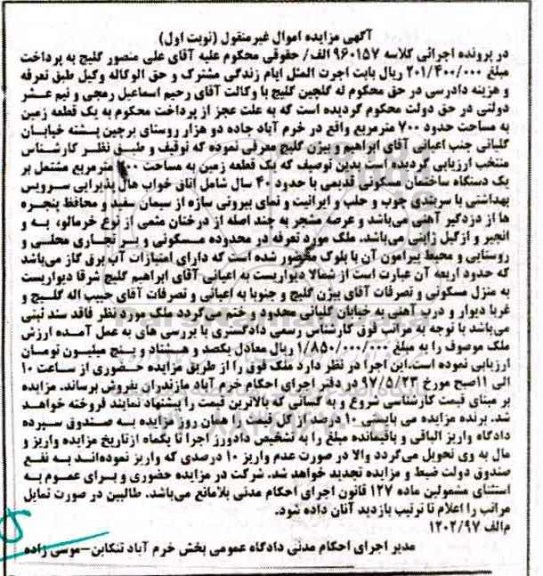 آگهی مزایده اموال غیرمنقول (نوبت اول)
در پرونده اجرائی کلاسه ۹۶۰۱۵۷الف/ حقوقی محکوم علیه آقای علی منصور گلیج به پرداخت
مبلغ ۲۰۱/۴۰۰/۰۰۰ ریال بابت اجرت المثل ایام زندگی مشترک و حق الوکاله وکیل طبق تعرفه
و هزینه دادرسی در حق محکوم له گلچین گلیج با وکالت آقای رحیم اسماعیل رمجی و نیم عشر
دولتی در حق دولت محکوم گردیده است که به علت عجز از پرداخت محکوم به یک قطعه زمین
به مساحت حدود ۷۰۰ مترمربع واقع در خرم آباد جاده دو هزار روستای برچین پشته خیابان
گلباتی جنب اعیانی آقای ابراهیم و بیژن گلیج معرفی نموده که توقیف و طبق نظر کارشناس
منتخب ارزیابی گردیده است بدین توصیف که یک قطعه زمین به مساحت مترمربع مشتمل بر
یک دستگاه ساختمان مسکونی قدیمی با حدود ۴۰ سال شامل اتاق خواب هال پذیرایی سرویس
بهداشتی با سربندی چوب و حلب و ایرانیت و نمای بیرونی سازه از سیمان سفید و محافظ پنجره
ها از دزدگیر آهنی می‌باشد و عرصه مشجر به چند اصله از درختان مثمی از نوع خرمالو، به و
انجیر و ازگیل ژاپنی می‌باشد. ملک مورد تعرفه در محدوده مسکونی و تجاری محلی و
روستایی و محیط پیرامون آن با بلوک محصور شده است که دارای امتیازات آب برق گاز می‌باشد
که حدود اربعه آن عبارت است از شمالا دیواریست به اعیانی آقای ابراهیم گلیج شرقا دیواریست
به منزل مسکونی و تصرفات آقای بیژن گلیج و جنوبا به اعیانی و تصرفات آقای حبیب اله گلیج و
غربا دیوار و درب آهنی به خیابان گلباتی محدود و ختم می‌گردد ملک مورد نظر فاقد سند ثبتی
می‌باشد با توجه به مراتب فوق کارشناس رسمی دادگستری با بررسی های به عمل آمده ارزش
ملک موصوف را به مبلغ ۱/۸۵۰/۰۰۰/۰۰۰ ریال معادل یکصد و هشتاد و پنج میلیون تومان
ارزیابی نموده است.این اجرا در نظر دارد ملک فوق را از طریق مزایده حضوری از ساعت ۱۰
الی ۱۱صبح مورخ ۹۷/۵/۲۳ در دفتر اجرای احکام خرم آباد مازندران بفروش برساند. مزایده
بر مبنای قیمت کارشناسی شروع و به کسانی که بالاترین قیمت را پیشنهاد نمایند فروخته خواهد
شد. برنده مزایده می بایستی ۱۰ درصد از کل قیمت را همان روز مزایده به صندوق سپرده
دادگاه واریز الباقی و باقیمانده مبلغ را به تشخیص دادورز اجرا تا یکماه ازتاریخ مزایده واریز و
مال به وی تحویل می‌گردد والا در صورت عدم واریز ۱۰ درصدی که واریز نموده‌اند به نفع
صندوق دولت ضبط و مزایده تجدید خواهد شد. شرکت در مزایده حضوری و برای عموم به
استثنای مشمولین ماده ۱۲۷ قانون اجرای احکام مدنی بلامانع می‌باشد. طالبین در صورت تمایل
مراتب را اعلام تا ترتیب بازدید آنان داده شود.
م‌الف ۱۲۰۲/۹۷
مدیر اجرای احکام مدنی دادگاه عمومی بخش خرم آباد تنکابن-موسی زاده